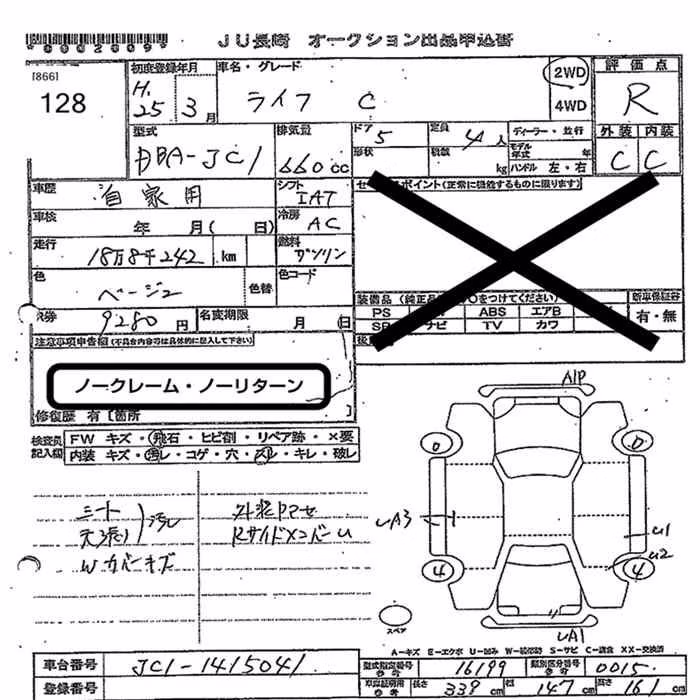 *0002009*
JU長崎 オークション出品申込書
[866]
128
初度登録年月 H.25年 3月
車名・グレード ライフ C
2WD
4WD
評価点 R
外装 内装
C C
型式 DBA-JC1
排気量 660cc
ドア 5
定員 4人
形状
積数 kg
ディーラー・並行
モデル年式 年
ハンドル 左・右
車歴 自家用
シフト IAT
車検 年 月 ( 日)
冷房 AC
走行 18万8千242 km
燃料 ガソリン
色 ベージュ
色替
色コード
9280円
名変期限 月 (日
ポイント (正常に機能するものに限ります)
をつけてください)
新車保証書
有・無
PS ABS エアB
TV カワ
注意事項申告欄 (不具合内容等は具体的に記入して下さい)
ノークレーム・ノーリターン
修復歴 有 [箇所 ]
検査員記入欄
FW キズ・飛石・ヒビ割・リペア跡・×要
内装 キズ・汚レ・コゲ・穴・スレ・キレ・破レ
シート
天張り
汚れ
Wカバーキズ
外装ヤケ
RサイドメンバーU
A1P
UA3
U1
U2
4 4
UA1
スペア
A-キズ E-エクボ U-凹み W-装修跡 S-サビ C-腐食 XX-交換済
車台番号 JC1-1415041
登録番号
型式指定番号 参考 16199
類別区分番号 参考 0015
車庫証明用 参考 長さ 339cm 幅 147cm 高さ 161cm